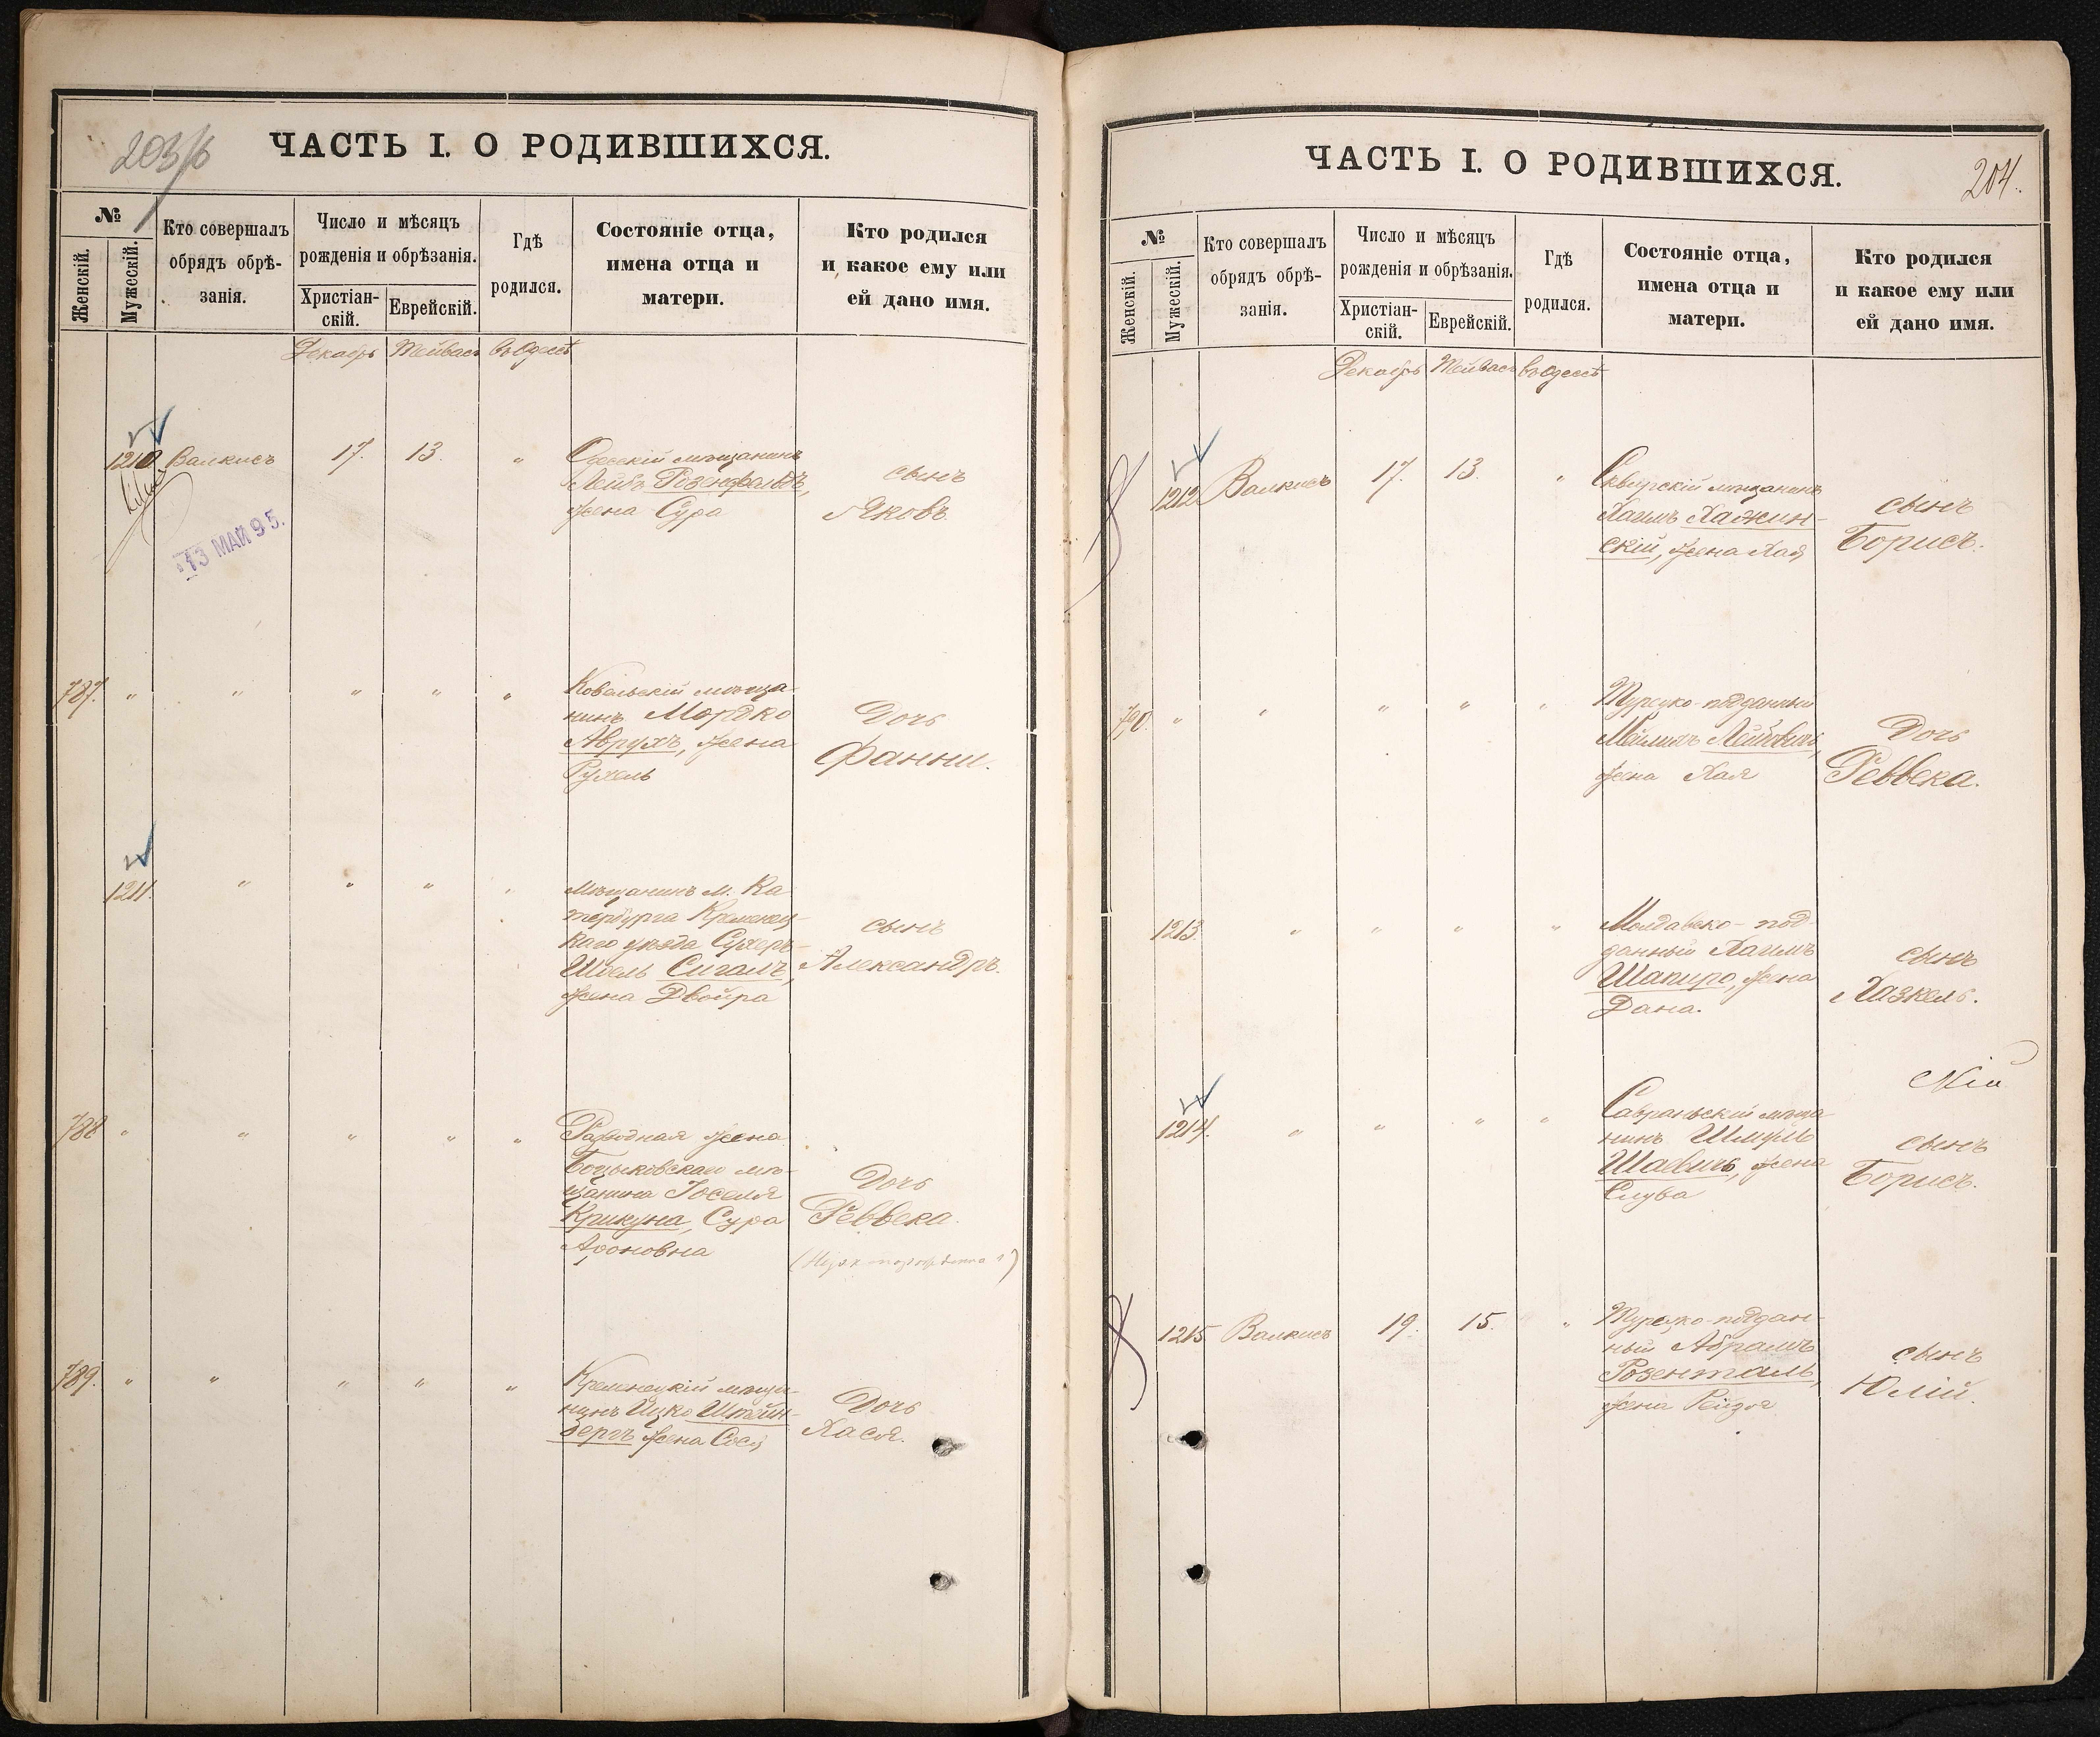 203/б
ЧАСТЬ I. О РОДИВШИХСЯ.
№
Женскій.
Мужескій.
Кто совершалъ
обрядъ обрѣ-
занія.
Число и мѣсяцъ
рожденія и обрѣзанія.
Христіан-
скій.
Еврейскій.
Гдѣ
родился.
Состояніе отца,
имена отца и
матери.
Кто родился
и какое ему или
ей дано имя.
Декабрь Тейвасъ въ Одессѣ
1210. Валкисъ 17. 13. "
Одесскій мѣщанинъ
Лейбъ Розенфельдъ,
жена Сура
сынъ
Яковъ
13 МАЙ 95.
787. " " " " "
Ковельскій мѣща-
нинъ Мордко
Аврухъ, жена
Рухель
Дочь
Фанни.
1211. " " " "
Мѣщанинъ м. Ка
тербурга Кременец-
каго уѣзда Сухеръ-
Шоель Сигалъ,
жена Двойра
сынъ
Александръ.
788 " " " " "
Разводная жена
мѣ-
щанина Іоселя
Крикуна, Сура
Ароновна
Дочь
Реввека.
789. " " " " "
Кременецкій мѣща-
нинъ Ицко Штейн-
бергъ жена Сося
Дочь
Хася.
ЧАСТЬ I. О РОДИВШИХСЯ.
204.
№
Женскій.
Мужескій.
Кто совершалъ
обрядъ обрѣ-
занія.
Число и мѣсяцъ
рожденія и обрѣзанія.
Христіан-
скій.
Еврейскій.
Гдѣ
родился.
Состояніе отца,
имена отца и
матери.
Кто родился
и какое ему или
ей дано имя.
Декабрь Тейвасъ въ Одессѣ
1212 Валкисъ 17. 13. "
Сквирскій мѣщанинъ
Хаимъ Хажин-
скій, жена Хая
сынъ
Борисъ.
790. " " " " "
Турецко-подданный
Мейлихъ Лейбвичъ,
жена Хая
Дочь
Реввека.
1213. " " " "
Молдавско-под
данный Хаимъ
Шапиро, жена
Дана.
сынъ
Хазкель.
1214. " " " "
Савранскій мѣща
нинъ Шмуль
Шаевичъ, жена
Слува
сынъ
Борисъ.
1215. Валкисъ 19. 15. "
Турецко-поддан-
ный Абрамъ
Розенталь,
жена Рейзя
сынъ
Юлій.